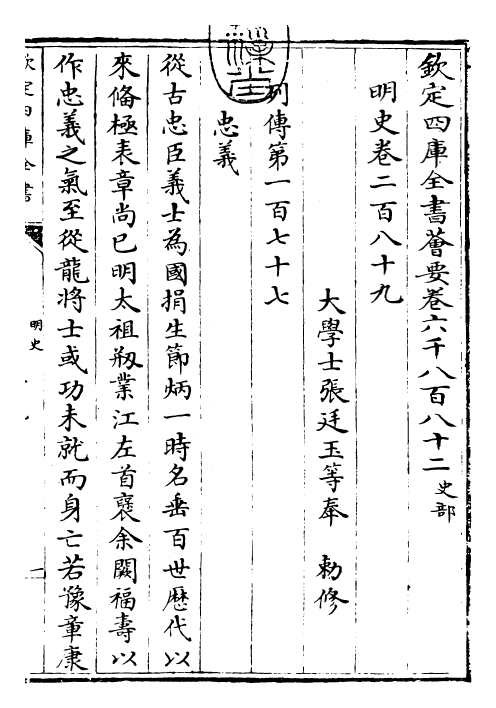 欽定四庫全書薈要卷六千八百八十二 史部
明史卷二百八十九
大學士張廷玉等奉 勅修
列傳第一百七十七
忠義
從古忠臣義士為國捐生節炳一時名垂百世歴代以
來俻極表章尚已明太祖剏業江左首襃余闕福壽以
作忠義之氣至從龍將士或功未就而身亡若豫章康
欽定四庫全書
明史